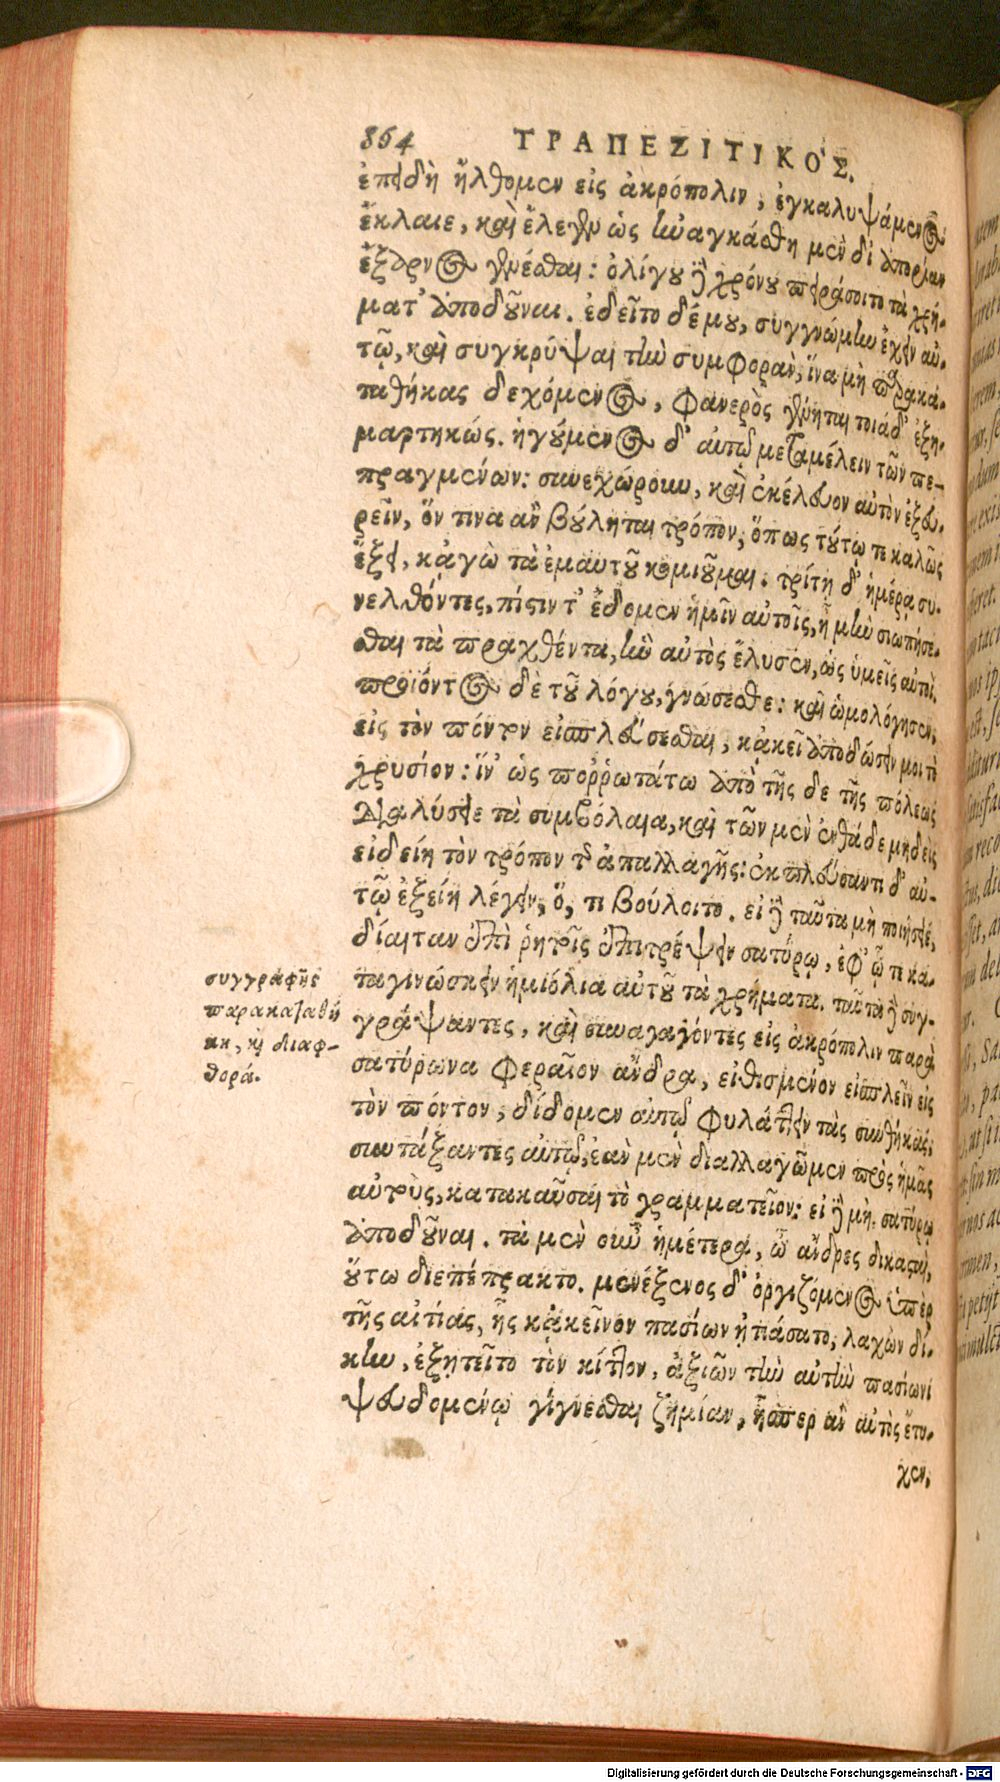 864 ΤΡΑΠΕΖΙΤΙΚΌΣ.
ἐπειδὴ ἤλθομεν εἰς ἀκρόπολιν, ἐγκαλυψάμενος
ἔκλαιε, καὶ ἔλεγεν ὡς ἠναγκάσθη μὲν δι' ἀπορίαν
ἔξαρνος γενέσθαι: ὀλίγου δὲ χρόνου πειράσοιτο τὰ χρή-
ματ' ἀποδοῦναι. ἐδεῖτο δέ μου, συγγνώμην ἔχειν αὐ-
τῷ, καὶ συγκρύψαι τὴν συμφορὰν, ἵνα μὴ παρακα-
ταθήκας δεχόμενος, φανερὸς γένηται τοιάδ' ἐξη-
μαρτηκώς. ἡγούμενος δ' αὐτῷ μεταμέλειν τῶν πε-
πραγμένων: συνεχώρουν, καὶ ἐκέλευον αὐτὸν ἐξευ-
ρεῖν, ὅν τινα ἂν βούληται τρόπον, ὅπως τούτῳ τε καλῶς
ἕξει, κἀγὼ τὰ ἐμαυτοῦ κομιοῦμαι. τρίτῃ δ' ἡμέρᾳ συ-
νελθόντες, πίστιν τ' ἔδομεν ἡμῖν αὐτοῖς, ἦ μὴν σιωπήσε-
σθαι τὰ πραχθέντα, ἣν αὐτὸς ἔλυσεν, ὡς ὑμεῖς αὐτοὶ,
προϊόντος δὲ τοῦ λόγου, γνώσεσθε: καὶ ὡμολόγησεν,
εἰς τὸν πόντον εἰσπλεύσεσθαι, κἀκεῖ ἀποδώσειν μοι τὸ
χρυσίον: ἵν' ὡς πορρωτάτω ἀπὸ τῆς δε τῆς πόλεως
διαλύσειε τὰ συμβόλαια, καὶ τῶν μὲν ἐνθάδε μηδεὶς
εἰδείη τὸν τρόπον τῆς ἀπαλλαγῆς: ἐκπλεύσαντι δ' αὐ-
τῷ ἐξείη λέγειν, ὅ, τι βούλοιτο. εἰ δὲ ταῦτα μὴ ποιήσειε,
δίαιταν ἐπὶ ῥητοῖς ἐπιτρέψειν σατύρῳ, ἐφ' ᾧ τε κα-
ταγινώσκειν ἡμιόλια αὐτοῦ τὰ χρήματα. ταῦτα δὲ συγ-
γράψαντες, καὶ συναγαγόντες εἰς ἀκρόπολιν παρὰ
σατύρωνα Φεραῖον ἄνδρα, εἰθισμένον εἰσπλεῖν εἰς
τὸν πόντον, δίδομεν αὐτῷ φυλάττειν τὰς συνθήκας,
συντάξαντες αὐτῷ, ἐὰν μὲν διαλλαγῶμεν πρὸς ἡμᾶς
αὐτοὺς, κατακαῦσαι τὸ γραμματεῖον: εἰ δὲ μὴ, σατύρῳ
ἀποδοῦναι. τὰ μὲν οὖν ἡμέτερα, ὦ ἄνδρες δικασταὶ,
οὕτω διεπέπρακτο. μενέξενος δ' ὀργιζόμενος ὑπὲρ
τῆς αἰτίας, ἧς κἀκεῖνον πασίων ᾐτιάσατο, λαχὼν δί-
κην, ἐξῃτεῖτο τὸν κίττον, ἀξιῶν τὴν αὐτὴν πασίωνι
ψευδομένῳ γίγνεσθαι ζημίαν, ἧσπερ ἂν αὐτὸς ἔτυ-
χεν,
συγγραφῆς
παρακαταθή
κη, καὶ διαφ-
θορά.
Digitalisierung gefördert durch die Deutsche Forschungsgemeinschaft - DFG